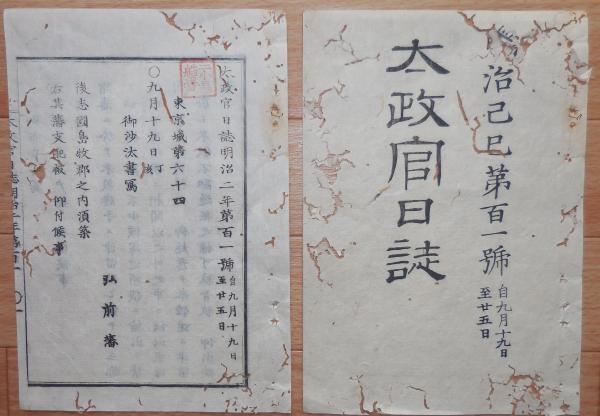 治己巳第百一號 自九月十九日
至廿五日
太政官日誌
太政官日誌明治二年第百一號 自九月十九日
至廿五日
東京城第六十四
○九月十九日 丁亥
御沙汰書寫
弘前藩
後志國島牧郡之内須築
右其藩支配被 仰付候事